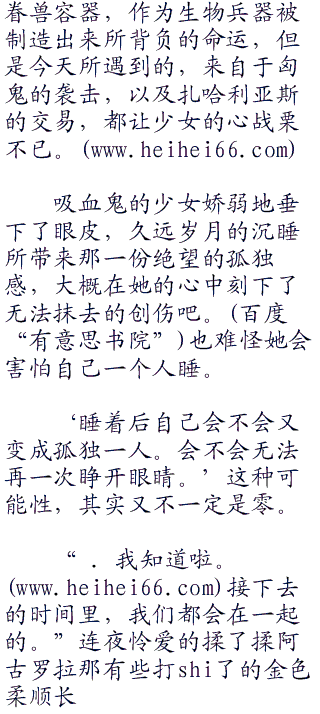 眷兽容器，作为生物兵器被
制造出来所背负的命运，但
是今天所遇到的，来自于匈
鬼的袭击，以及扎哈利亚斯
的交易，都让少女的心战栗
不已。(www.heihei66.com)
吸血鬼的少女娇弱地垂
下了眼皮，久远岁月的沉睡
所带来那一份绝望的孤独
感，大概在她的心中刻下了
无法抹去的创伤吧。(百度
“有意思书院”)也难怪她会
害怕自己一个人睡。
‘睡着后自己会不会又
变成孤独一人。会不会无法
再一次睁开眼睛。’这种可
能性，其实又不一定是零。
“．我知道啦。
(www.heihei66.com)接下去
的时间里，我们都会在一起
的。”连夜怜爱的揉了揉阿
古罗拉那有些打shi了的金色
柔顺长